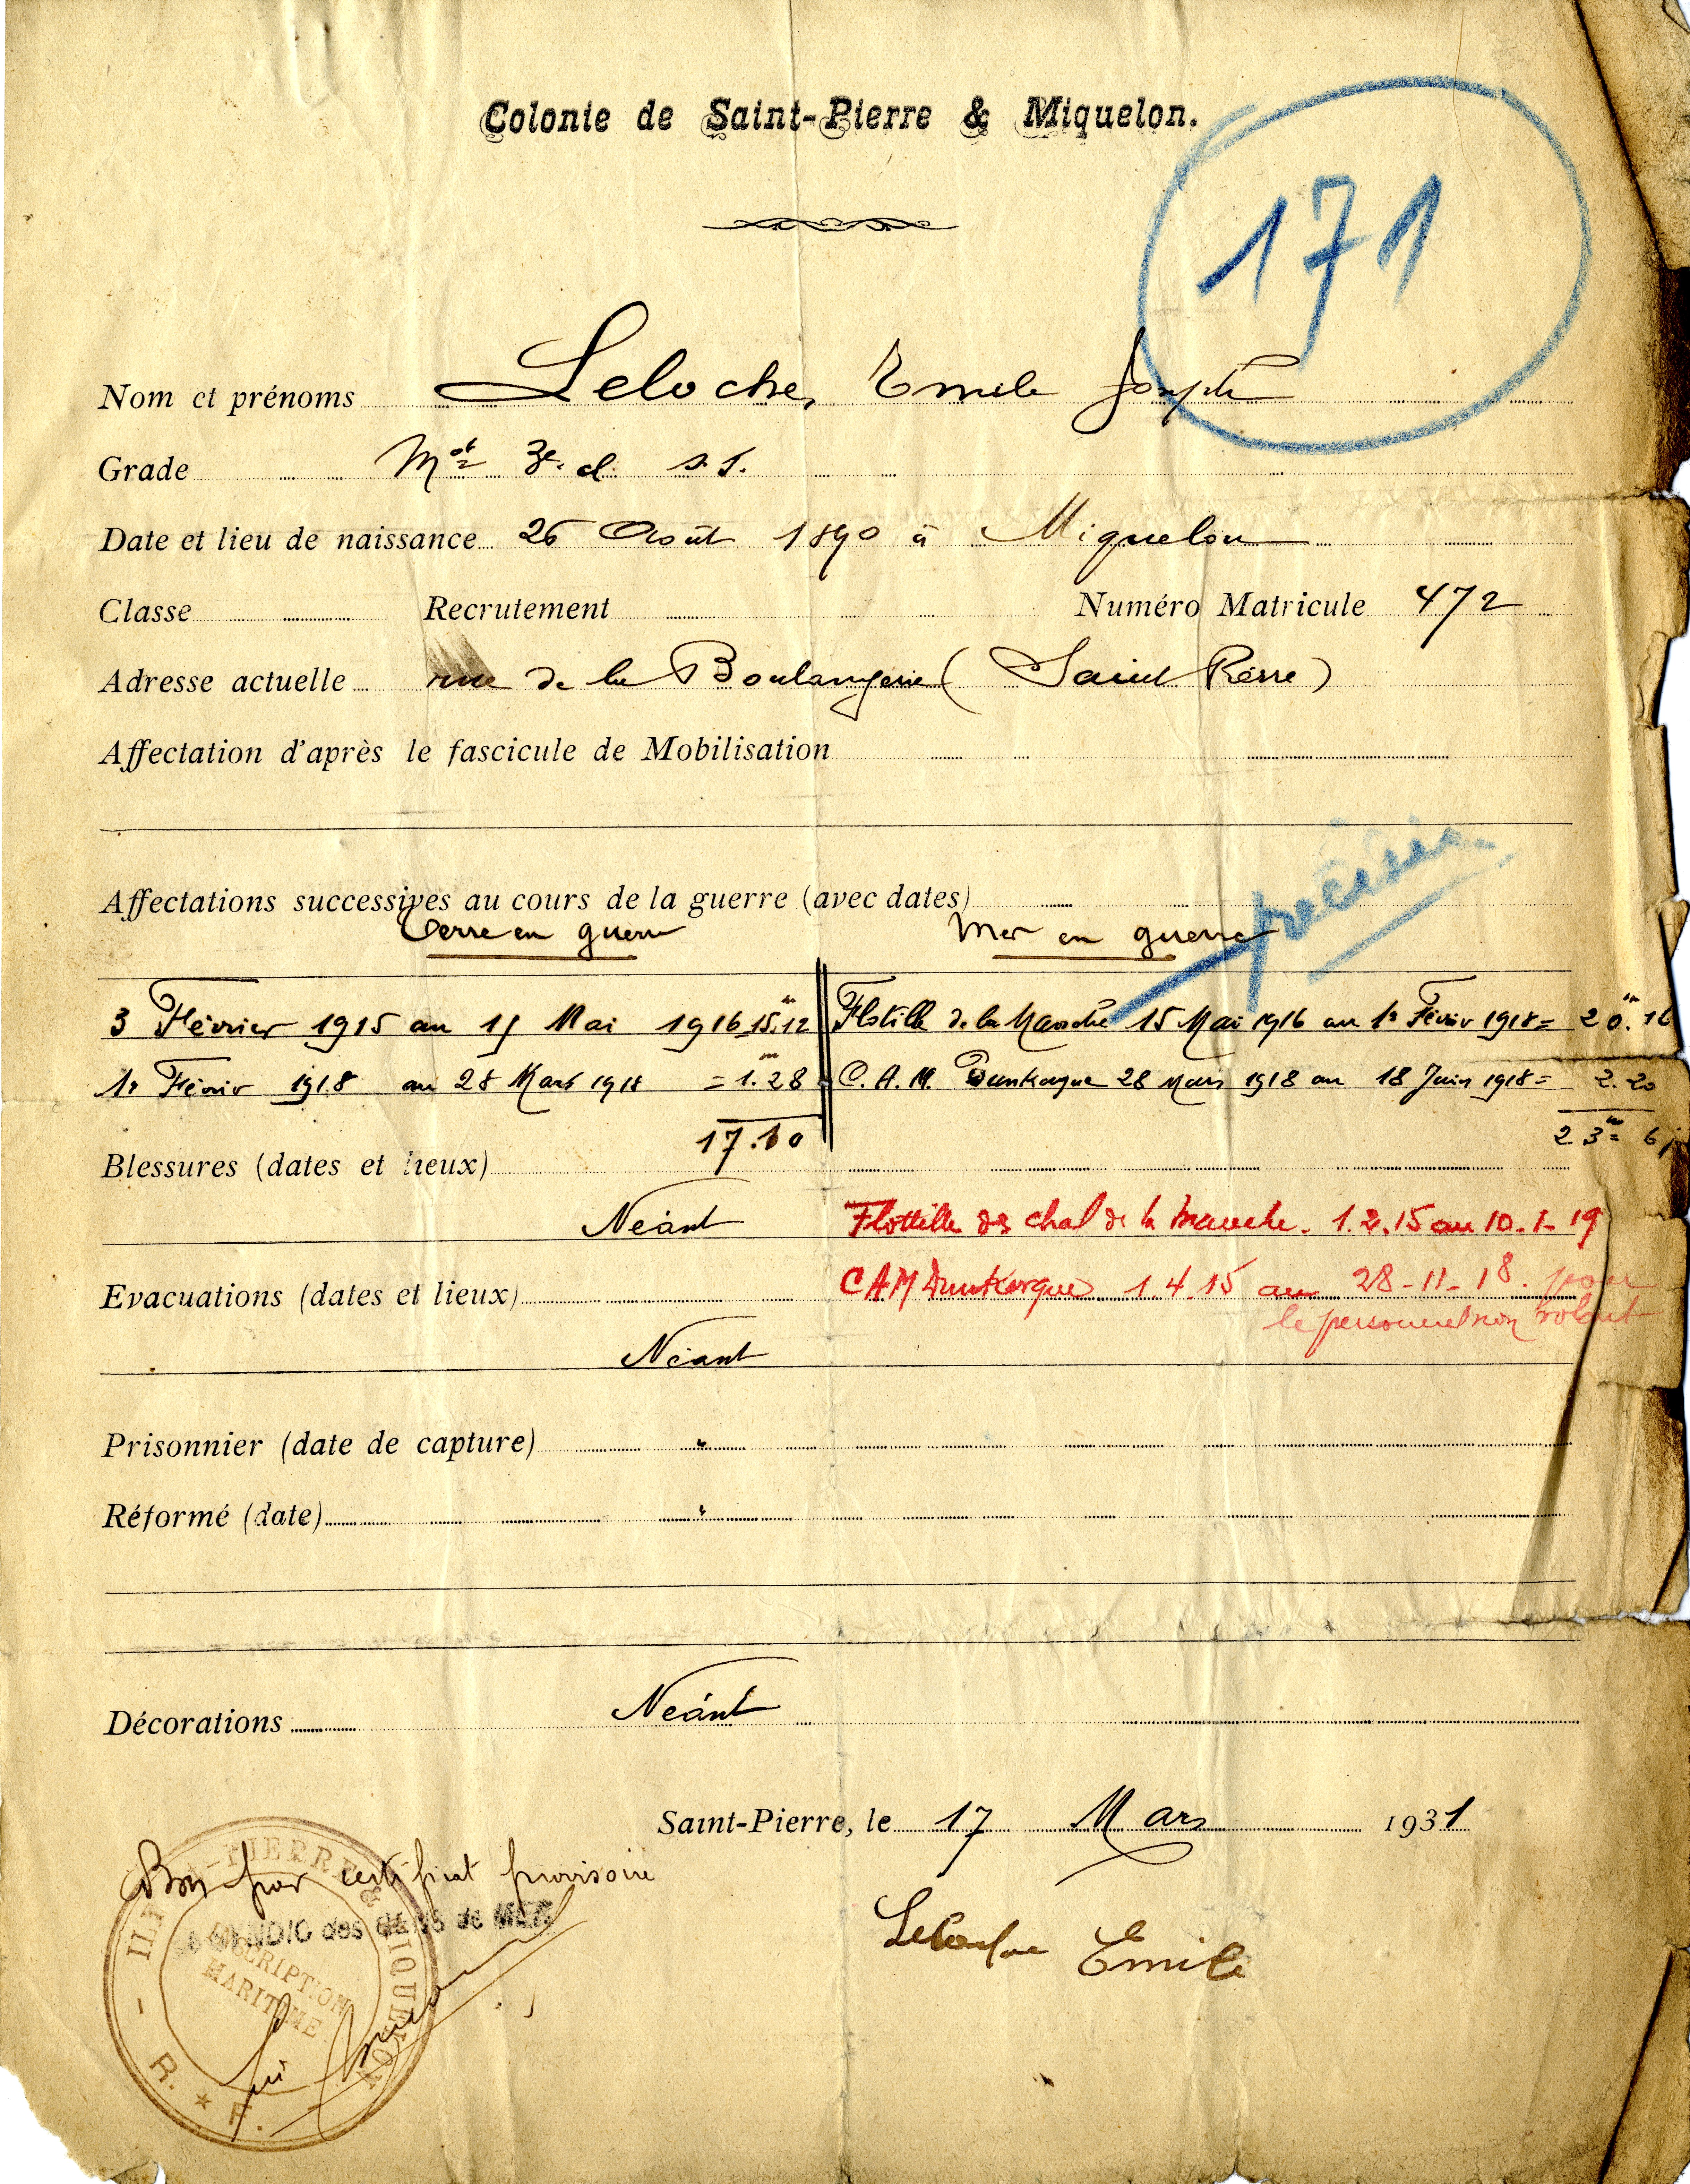 Colonie de Saint-Pierre & Miquelon.
171
Nom et prénoms Leloche, Emile Joseph
Grade Mot 3e cl. s. s.
Date et lieu de naissance 26 Août 1890 à Miquelon
Classe Recrutement Numéro Matricule 472
Adresse actuelle rue de la Boulangerie (Saint Pierre)
Affectation d'après le fascicule de Mobilisation
préciser
Affectations successives au cours de la guerre (avec dates)
Terre en guerre Mer en guerre
3 Février 1915 au 15 Mai 1916 15m.12 Flotille de la Manche 15 Mai 1916 au 1r Février 1918 = 20m.16
1r Février 1918 au 28 Mars 1918 = 1m.28 C. A. M. Dunkerque 28 Mars 1918 au 18 Juin 1918 = 2.20
17.10 23m = 6j
Blessures (dates et lieux)
Néant Flottille des chal de la Manche. 1.2.15 au 10.1-19
Evacuations (dates et lieux) CAM Dunkerque 1.4.15 au 28-11-18. pour
le personnel non volant
Néant
Prisonnier (date de capture) "
Réformé (date) "
Décorations Néant
Saint-Pierre, le 17 Mars 1931
Bon pour certificat provisoire
SYNDIC des GENS de MER
ILES St-PIERRE & MIQUELON
INSCRIPTION
MARITIME
R. F.
Emile